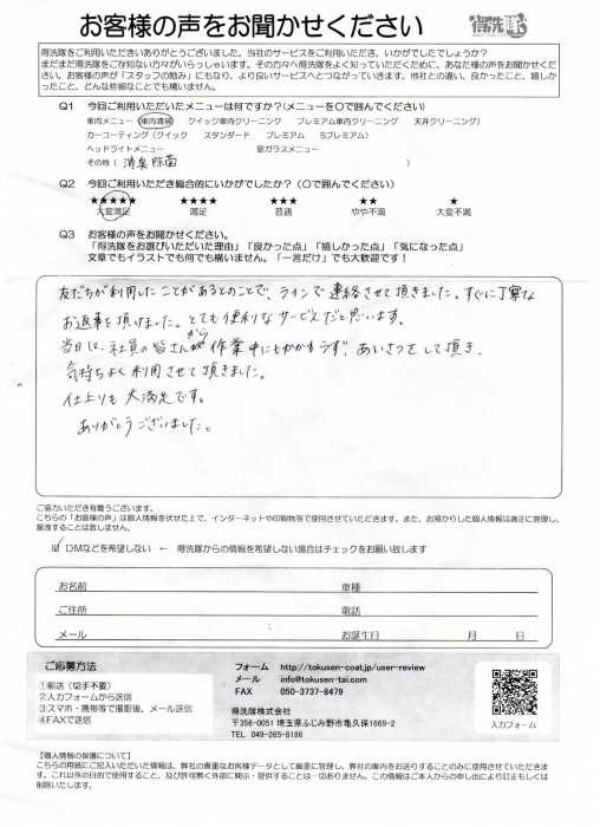 お客様の声をお聞かせください
得洗隊
得洗隊をご利用いただきありがとうございました。当社のサービスをご利用いただき、いかがでしたでしょうか?
まだまだ得洗隊をご存知ない方々がいらっしゃいます。その方々へ得洗隊をよく知っていただくために、あなた様の声をお聞かせください。お客様の声が「スタッフの励み」にもなり、より良いサービスへとつながっていきます。他社との違い、良かったこと、嬉しかったこと、どんな些細なことでも構いません。
Q1 今回ご利用いただいたメニューは何ですか?(メニューを〇で囲んでください)
車内メニュー(車内清掃 クイック車内クリーニング プレミアム車内クリーニング 天井クリーニング)
カーコーティング(クイック スタンダード プレミアム Sプレミアム)
ヘッドライトメニュー 窓ガラスメニュー
その他( 消臭除菌 )
Q2 今回ご利用いただき総合的にいかがでしたか?(〇で囲んでください)
★★★★★ ★★★★ ★★★ ★★ ★
大変満足 満足 普通 やや不満 大変不満
Q3 お客様の声をお聞かせください。
「得洗隊をお選びいただいた理由」「良かった点」「嬉しかった点」「気になった点」
文章でもイラストでも何でも構いません。「一言だけ」でも大歓迎です!
友だちが利用したことがあるとのことで、ラインで連絡させて頂きました。すぐに丁寧な
お返事を頂けました。とても便利なサービスだと思います。
当日は、社員の皆さんから作業中にもかかわらず、あいさつをして頂き、
気持ちよく利用させて頂きました。
仕上りも大満足です。
ありがとうございました。
ご協力いただき有難うございます。
こちらの「お客様の声」は個人情報を伏せた上で、インターネットや印刷物等で使用させていただきます。また、お預かりした個人情報は適正に管理し、
☑ DMなどを希望しない ← 得洗隊からの情報を希望しない場合はチェックをお願い致します
お名前 車種
ご住所 電話
メール お誕生日 月 日
ご応募方法
①郵送(切手不要)
②入力フォームから送信
③スマホ・携帯等で撮影後、メール送信
④FAXで送信
フォーム http://tokusen-coat.jp/user-review
メール info@tokusen-tai.com
FAX 050-3737-8479
得洗隊株式会社
〒356-0051 埼玉県ふじみ野市亀久保1669-2
TEL 049-265-6186
入力フォーム
【個人情報の保護について】
こちらの用紙にご記入いただいた情報は、弊社の貴重なお客様データとして厳重に管理し、弊社の案内をお送りすることのみに使用させていただきます。これ以外の目的で使用すること、及び許可無く外部に開示・提供することは一切ありません。この情報はご本人からの申し出により訂正もしくは削除いたします。